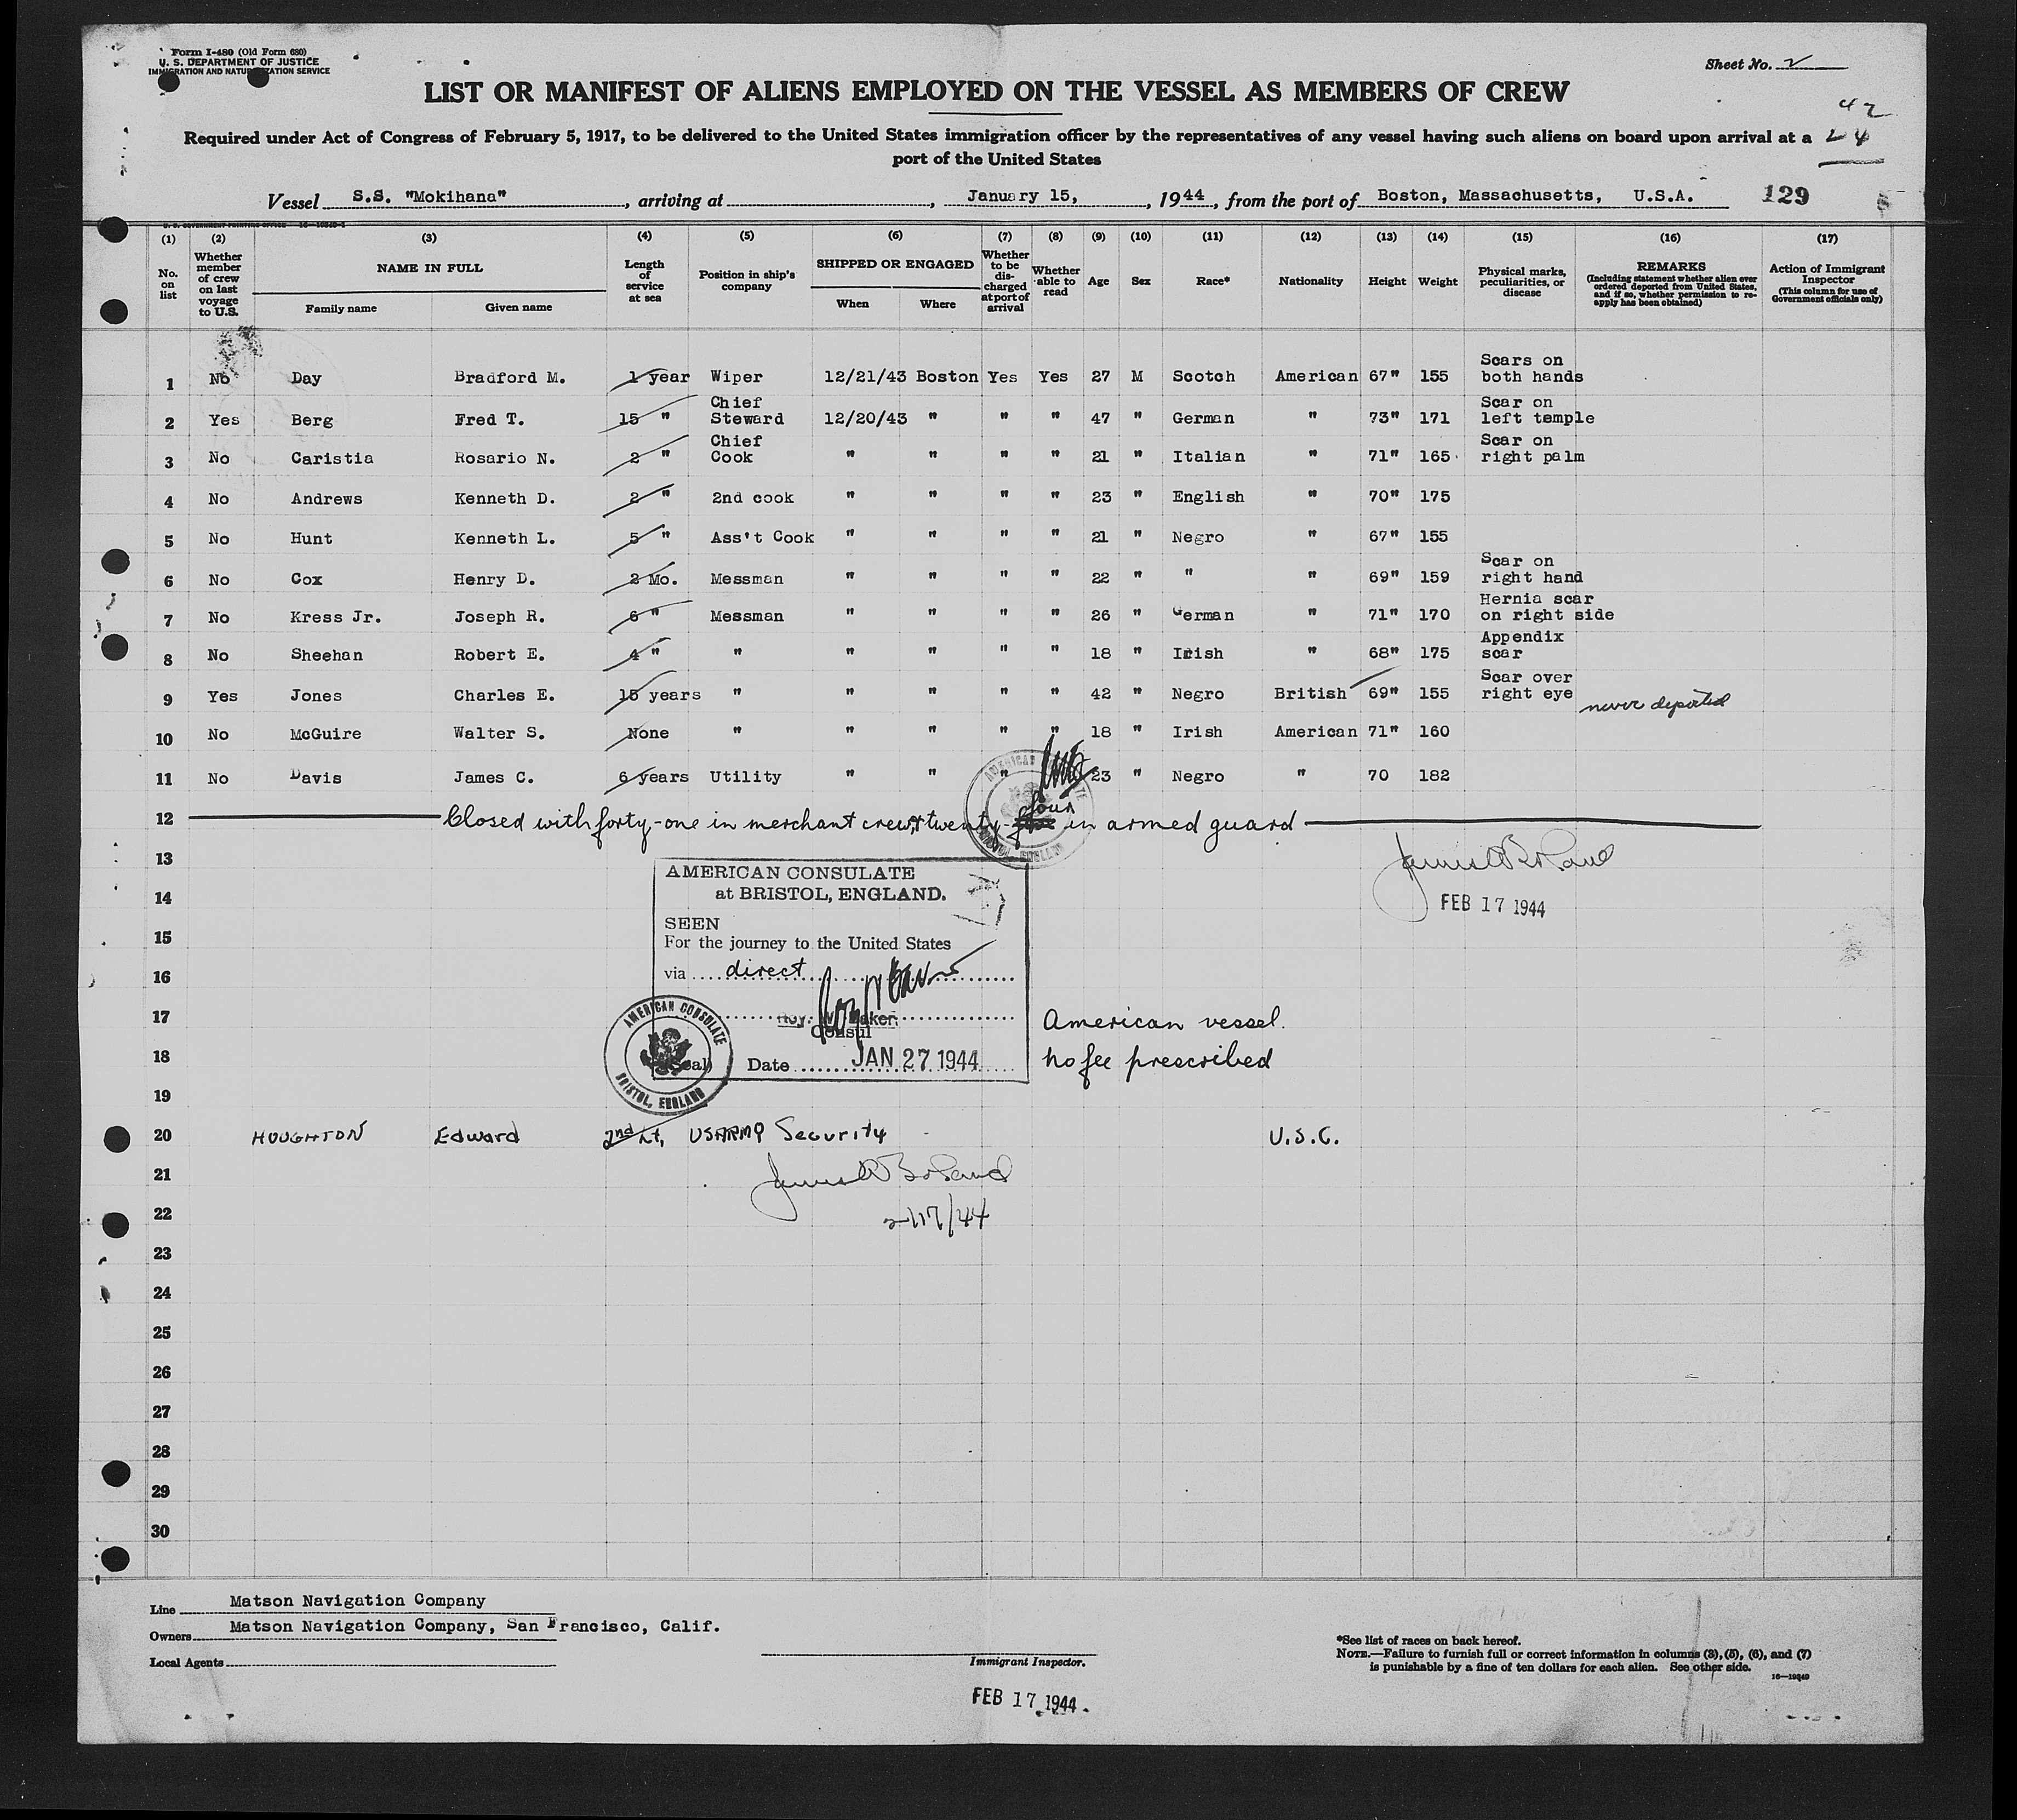 Form I-480 (Old Form 680)
U. S. DEPARTMENT OF JUSTICE
IMMIGRATION AND NATURALIZATION SERVICE
Sheet No. 2
LIST OR MANIFEST OF ALIENS EMPLOYED ON THE VESSEL AS MEMBERS OF CREW
42
24
Required under Act of Congress of February 5, 1917, to be delivered to the United States immigration officer by the representatives of any vessel having such aliens on board upon arrival at a
port of the United States
Vessel S.S. "Mokihana", arriving at , January 15, , 1944, from the port of Boston, Massachusetts, U.S.A. 129
(1) (2) (3) (4) (5) (6) (7) (8) (9) (10) (11) (12) (13) (14) (15) (16) (17)
No. on list
Whether member of crew on last voyage to U.S.
NAME IN FULL
Family name Given name
Length of service at sea
Position in ship's company
SHIPPED OR ENGAGED
When Where
Whether to be discharged at port of arrival
Whether able to read
Age Sex Race* Nationality Height Weight
Physical marks, peculiarities, or disease
REMARKS
(Including statement whether alien ever ordered deported from United States, and if so, whether permission to re-apply has been obtained)
Action of Immigrant Inspector
(This column for use of Government officials only)
1 No Day Bradford M. 1 year Wiper 12/21/43 Boston Yes Yes 27 M Scotch American 67" 155 Scars on both hands
2 Yes Berg Fred T. 15 " Chief Steward 12/20/43 " " " 47 " German " 73" 171 Scar on left temple
3 No Caristia Rosario N. 2 " Chief Cook " " " " 21 " Italian " 71" 165 Scar on right palm
4 No Andrews Kenneth D. 2 " 2nd cook " " " " 23 " English " 70" 175
5 No Hunt Kenneth L. 5 " Ass't Cook " " " " 21 " Negro " 67" 155
6 No Cox Henry D. 2 Mo. Messman " " " " 22 " " " 69" 159 Scar on right hand
7 No Kress Jr. Joseph R. 6 " Messman " " " " 26 " German " 71" 170 Hernia scar on right side
8 No Sheehan Robert E. 4 " " " " " " 18 " Irish " 68" 175 Appendix scar
9 Yes Jones Charles E. 15 years " " " " " 42 " Negro British 69" 155 Scar over right eye never deported
10 No McGuire Walter S. None " " " " " 18 " Irish American 71" 160
11 No Davis James C. 6 years Utility " " " 23 " Negro " 70 182
12 Closed with forty-one in merchant crew, & twenty-four in armed guard
13
14
15
16
17
18
19
AMERICAN CONSULATE
at BRISTOL, ENGLAND.
SEEN
For the journey to the United States
via direct
Baker
Consul
(Seal) Date JAN 27 1944
AMERICAN CONSULATE
BRISTOL, ENGLAND
FEB 17 1944
American vessel.
no fee prescribed
20 HOUGHTON Edward 2nd Lt, US ARMY Security U.S.C.
21
22 2/17/44
23
24
25
26
27
28
29
30
Line Matson Navigation Company
Owners Matson Navigation Company, San Francisco, Calif.
Local Agents
Immigrant Inspector.
FEB 17 1944
*See list of races on back hereof.
NOTE.—Failure to furnish full or correct information in columns (3), (5), (6), and (7)
is punishable by a fine of ten dollars for each alien. See other side.